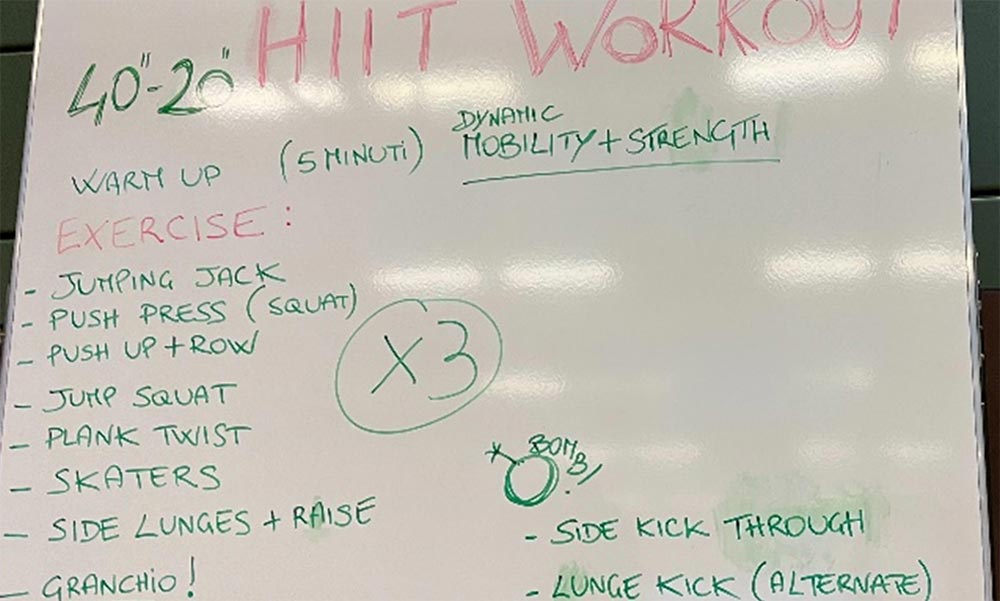 HIIT WORKOUT
40"-20"
WARM UP (5 MINUTI) DYNAMIC MOBILITY + STRENGTH
EXERCISE:
- JUMPING JACK
- PUSH PRESS (SQUAT)
- PUSH UP + ROW
X3
- JUMP SQUAT
- PLANK TWIST
- SKATERS
- SIDE LUNGES + RAISE
- GRANCHIO!
BOMB!
- SIDE KICK THROUGH
- LUNGE KICK (ALTERNATE)